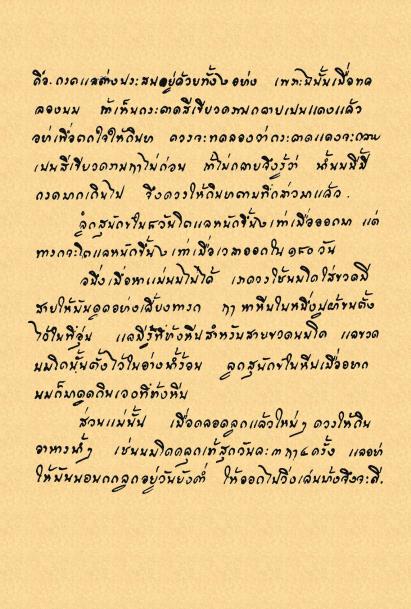 คือ. กรดแลด่างประสมอยู่ด้วยทั้ง ๒ อย่าง เพราะฉนั้นเมื่อทด
ลองนม ถ้าเห็นกระดาดสีเขียวครามกลายเปนแดงแล้ว
อย่าเพื่อตกใจให้กินยา ควรจะทดลองว่ากระดาดแดงจะกลาย
เปนสีเขียวครามฤๅไม่ก่อน ถ้าไม่กลายจึงรู้ว่า น้ำนมมี
กรดมากเกินไป จึงควรให้กินยาตามที่กล่าวมาแล้ว.
ลูกสุนักข์ใน ๘ วันโตแลหนักขึ้น ๒ เท่าเมื่อออกมา แต่
ทารกจะโตแลหนักขึ้น ๒ เท่าเมื่อเวลาออกใน ๑๘๐ วัน
อนึ่งเมื่อหาแม่นมไม่ได้ เราควรใช้นมโคใส่ขวดมี
สายให้มันดูดอย่างเลี้ยงทารก ฤๅหาหีบใบหนึ่งปูผ้าขนตั้ง
ไว้ในที่อุ่น แลมีรูที่ฝาหีบสำหรับสายขวดนมโค แลขวด
นมโคนั้นตั้งไว้ในอ่างน้ำร้อน ลูกสุนักข์ในหีบเมื่ออยาก
นมก็มาดูดกินเองที่ฝาหีบ
ส่วนแม่นั้น เมื่อคลอดลูกแล้วใหม่ๆ ควรให้กิน
อาหารน้ำๆ เช่นนมโคคลุกเข้าสุกวันละ ๓ ฤๅ ๔ ครั้ง แลอย่า
ให้มันนอนกกลูกอยู่วันยังค่ำ ให้ออกไปวิ่งเล่นบ้างจึงจะดี.